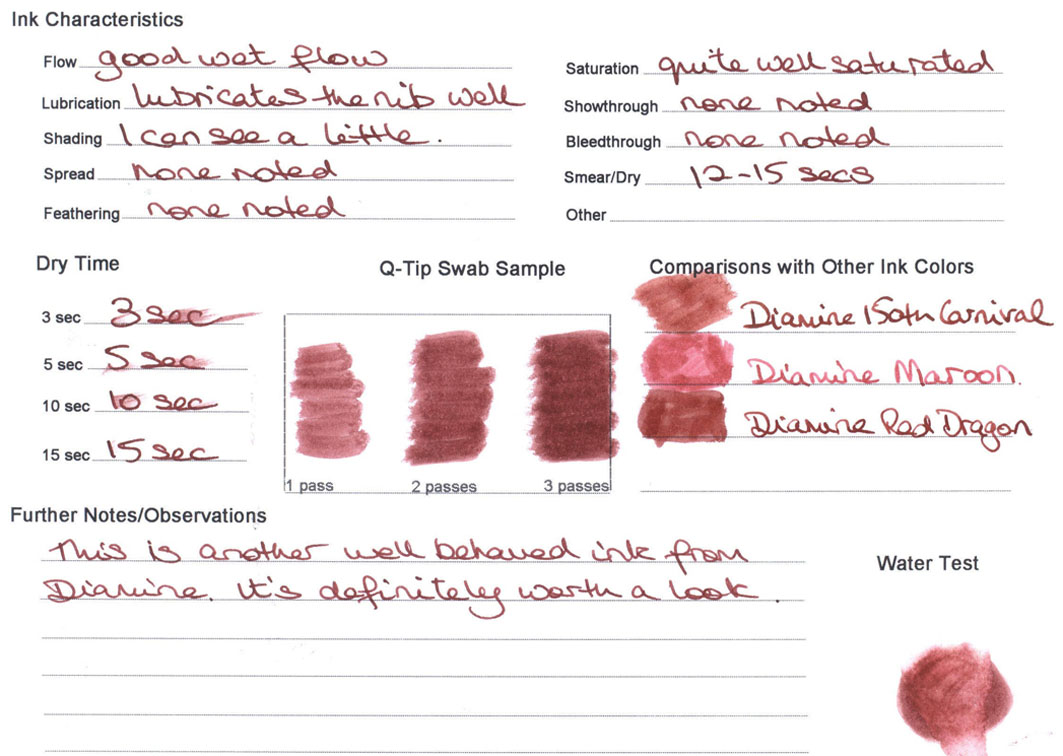 Ink Characteristics
Flow good wet flow
Lubrication lubricates the nib well
Shading I can see a little.
Spread none noted
Feathering none noted
Saturation quite well saturated
Showthrough none noted
Bleedthrough none noted
Smear/Dry 12-15 secs
Other
Dry Time
3 sec 3 sec
5 sec 5 sec
10 sec 10 sec
15 sec 15 sec
Q-Tip Swab Sample
1 pass 2 passes 3 passes
Comparisons with Other Ink Colors
Diamine 150th Carnival
Diamine Maroon.
Diamine Red Dragon
Further Notes/Observations
This is another well behaved ink from
Diamine. It's definitely worth a look.
Water Test